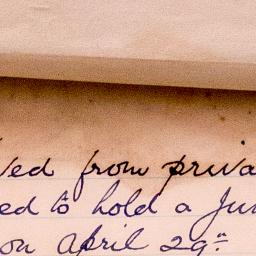 ved from priva
ed to hold a Ju
on April 29th